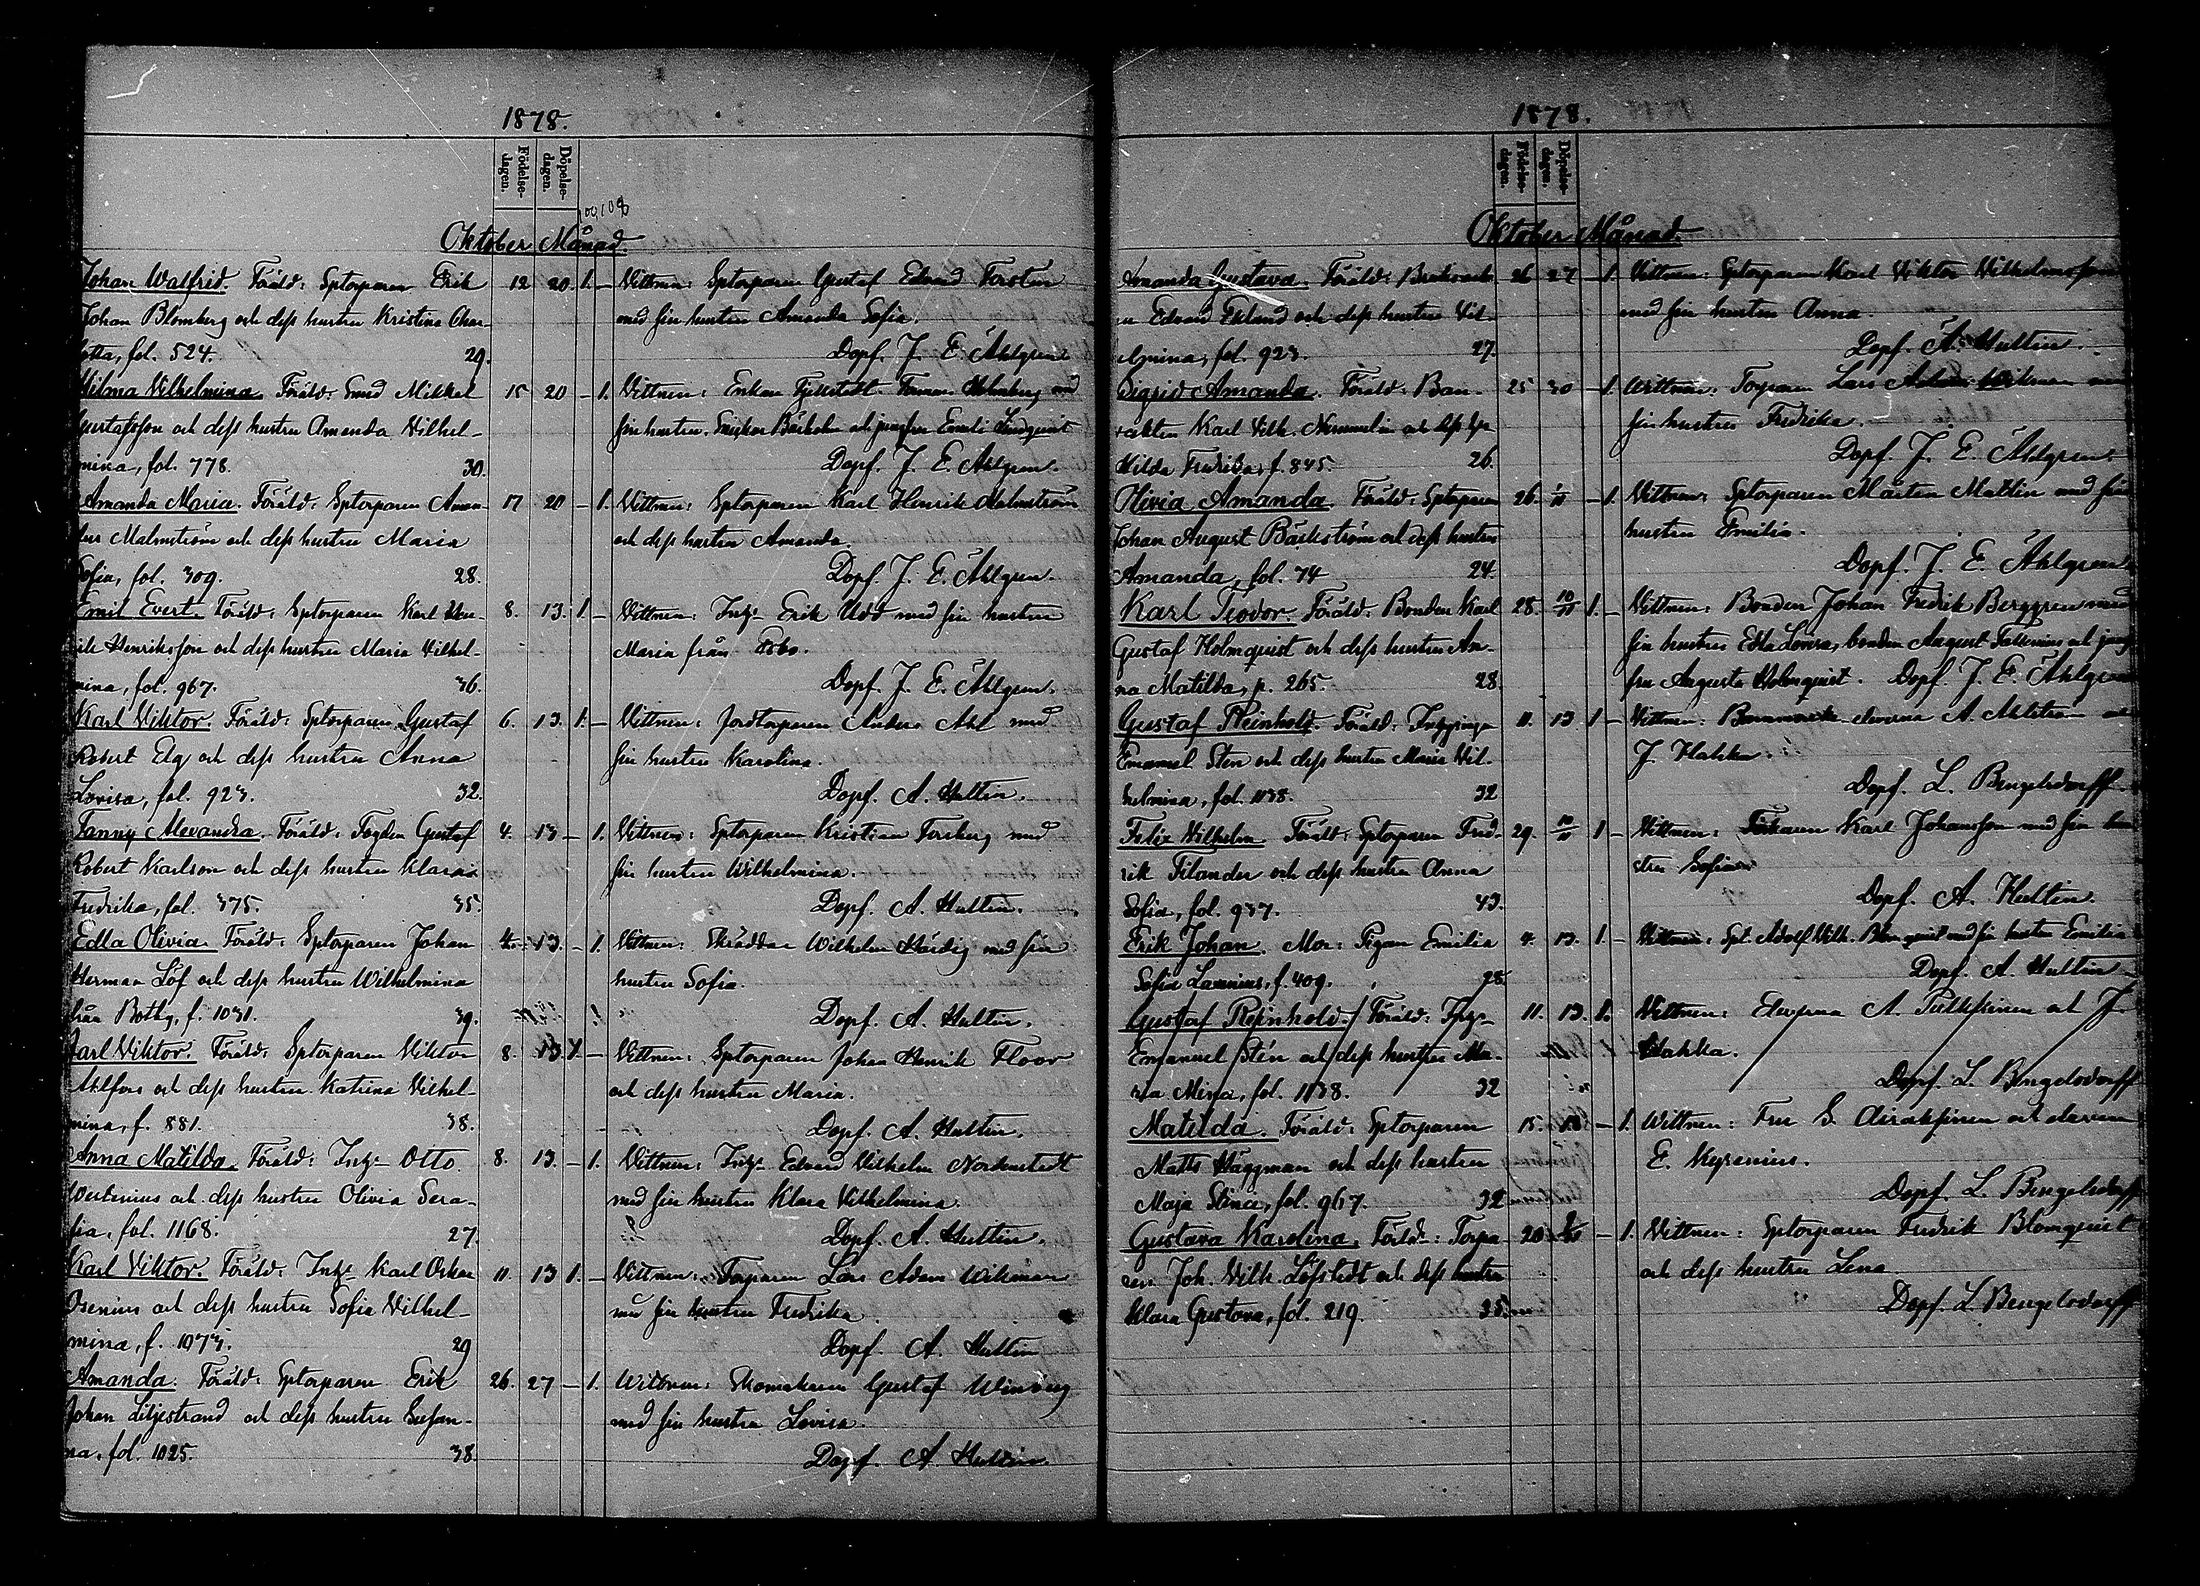 1878.
Födelse-dagen.
Döpelse-dagen.
Oktober Månad.
Johan Walfrid. Föräld: Sptorparen Erik 12 20 1. —
Johan Blomberg och dess hustru Kristina Char-
lotta, fol. 524. 29.
Vittnen: Sptorparen Gustaf Edvard Torsten
med sin hustru Amanda Sofia.
Döpf. J. E. Ahlgren
Hilma Vilhelmina. Föräld: Smed Mikkel 15 20 — 1.
Gustafsson och dess hustru Amanda Vilhel-
mina, fol. 778. 30.
Vittnen: Enkan Fjellstedt Holmberg med
sin hustru. och jungfru Emeli Lindqvist
Döpf. J. E. Ahlgren.
Amanda Maria. Föräld: Sptorparen Aman- 17 20 — 1.
dus Malmström och dess hustru Maria
Sofia, fol. 309. 28.
Vittnen: Sptorparen Karl Henrik Malmström
och dess hustru Amanda.
Döpf. J. E. Ahlgren.
Emil Evert. Föräld: Sptorparen Karl Hen- 8. 13. 1. —
rik Henriksson och dess hustru Maria Vilhel-
mina, fol. 967. 36.
Vittnen: Inhs Erik Udd med sin hustru
Maria från Åbo.
Döpf. J. E. Ahlgren.
Karl Viktor. Föräld: Sptorparen Gustaf 6. 13. 1. —
Robert Elg och dess hustru Anna
Lovisa, fol. 923. 32.
Vittnen: Jordtorparen Anders Ahl med
sin hustru Karolina.
Döpf. A. Hultin.
Fanny Alexandra. Föräld: Fogden Gustaf 4. 13 — 1.
Robert Karlson och dess hustru Klara
Fredrika, fol. 375. 35.
Vittnen: Sptorparen Kristian Forsberg med
sin hustru Wilhelmina.
Döpf. A. Hultin.
Edla Olivia. Föräld: Sptorparen Johan 4. 13. — 1.
Herman Löf och dess hustru Wilhelmina
från Botby, f. 1031. 39.
Vittnen: Skräddar Wilhelm Härdig med sin
hustru Sofia.
Döpf. A. Hultin.
Karl Viktor. Föräld: Sptorparen Viktor 8. 13 1. —
Ahlfors och dess hustru Katrina Vilhel-
mina, f. 881. 38.
Vittnen: Sptorparen Johan Henrik Floor
och dess hustru Maria.
Döpf. A. Hultin.
Anna Matilda. Föräld: Inhs Otto 8. 13. — 1.
Westenius och dess hustru Olivia Sera-
fia, fol. 1168. 27.
Vittnen: Inhs Edvard Vilhelm Nordenstedt
med sin hustru Klara Vilhelmina.
Döpf. A. Hultin.
Karl Viktor. Föräld: Inhs Karl Oskar 11. 13 1. —
Osenius och dess hustru Sofia Vilhel-
mina, f. 1073. 29
Vittnen: Torparen Lars Adam Wikman
med sin hustru Fredrika.
Döpf. A. Hultin
Amanda. Föräld: Sptorparen Erik 26. 27 — 1.
Johan Liljestrand och dess hustru Susan-
na, fol. 1025. 38.
Wittnen: Skomakaren Gustaf Winberg
med sin hustru Lovisa.
Döpf. A. Hultin.
1878.
Födelse-dagen.
Döpelse-dagen.
Oktober Månad.
Amanda Gustava. Föräld: 26 27 — 1.
Edvard Eklund och dess hustru Vil-
elmina, fol. 923. 27.
Vittnen: Sptorparen Karl Viktor Vilhelmsson
med sin hustru Anna.
Döpf. A. Hultin.
Sigrid Amanda. Föräld: Ban- 25 30 — 1.
vakten Karl Vilh. Nummelin och dess hu
Hilda Fredrika, f. 845. 26.
Wittnen: Torparen Lars Adam Wikman med
sin hustru Fredrika.
Döpf. J. E. Ahlgren.
Olivia Amanda. Föräld: Sptorparen 26. — 1.
Johan August Bäckström och dess hustru
Amanda, fol. 74 24.
Vittnen: Sptorparen Mårten Mattlin med sin
hustru Emilia.
Döpf. J. E. Ahlgren
Karl Teodor. Föräld: Bonden Karl 28. 10/11 1. —
Gustaf Holmquist och dess hustru An-
na Matilda, p. 265. 28.
Vittnen: Bonden Johan Fredrik Berggren med
sin hustru Edla Lovisa, bonden August och jung-
fru Augusta Holmquist. Döpf. J. E. Ahlgren
Gustaf Reinhold. Föräld: 11. 13 1 —
Emanuel Sten och dess hustru Maria Vil-
helmina, fol. 1138. 32
Vittnen: eleverna A.
J. Hakka.
Döpf. L. Bengelsdorff.
Felix Vilhelm. Föräld: Sptorparen Fred- 29. 10/11 1 —
rik Filander och dess hustru Anna
Sofia, fol. 937. 43.
Vittnen: Karl Johansson med sin hu-
stru Sofia
Döpf. A. Hultin.
Erik Johan. Mor: Pigan Emilia 4. 13. 1. —
Sofia f. 409. 28.
Vittnen: Spt. Adolf Vilh. Blomquist med sin hustru Emilia
Döpf. A. Hultin
Gustaf Reinhold. Föräld: Inhs 11. 13. 1.
Emanuel Stén och dess hustru Ma-
ria Mina, fol. 1138. 32
Vittnen: A. och J.
Hakka.
Döpf. L. Bengelsdorff
Matilda. Föräld: Sptorparen 15. — 1.
Matts Häggman och dess hustru
Maja Stina, fol. 967. 32
Wittnen: Fru S. och eleven
E. Kyrenius.
Döpf. L. Bengelsdorff
Gustava Karolina. Föräld: Torpa- 20. — 1.
ren Joh. Vilh. Löfstedt och dess hustru
Klara Gustava, fol. 219. 35.
Vittnen: Sptorparen Fredrik Blomquist
och dess hustru Lena
Döpf. L. Bengelsdorff